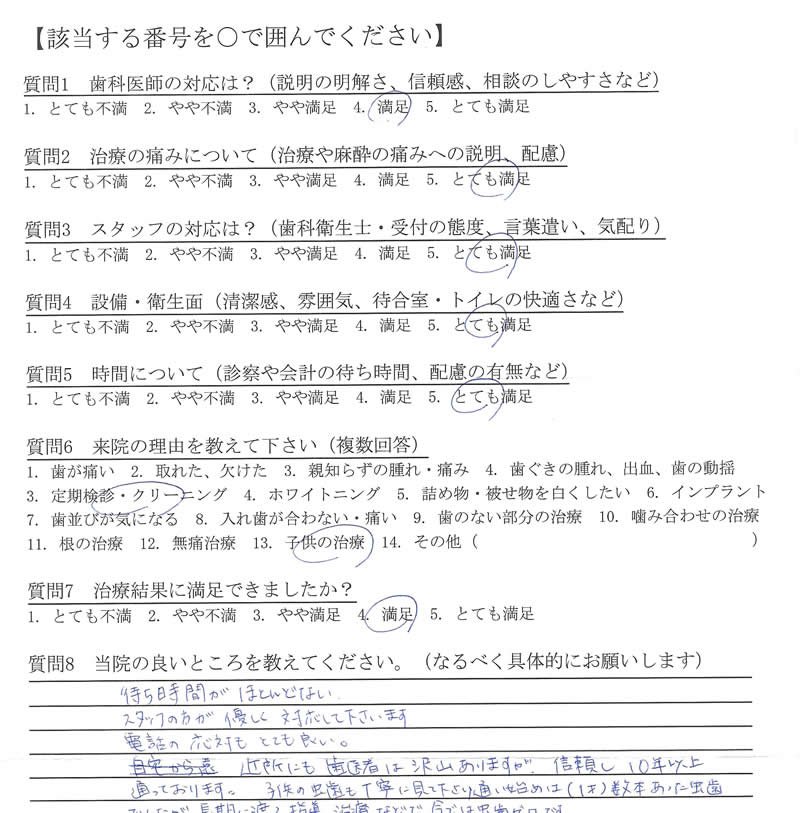 【該当する番号を〇で囲んでください】
質問1　歯科医師の対応は？（説明の明解さ、信頼感、相談のしやすさなど）
1. とても不満 2. やや不満 3. やや満足 4. 満足 5. とても満足
質問2　治療の痛みについて（治療や麻酔の痛みへの説明、配慮）
1. とても不満 2. やや不満 3. やや満足 4. 満足 5. とても満足
質問3　スタッフの対応は？（歯科衛生士・受付の態度、言葉遣い、気配り）
1. とても不満 2. やや不満 3. やや満足 4. 満足 5. とても満足
質問4　設備・衛生面（清潔感、雰囲気、待合室・トイレの快適さなど）
1. とても不満 2. やや不満 3. やや満足 4. 満足 5. とても満足
質問5　時間について（診察や会計の待ち時間、配慮の有無など）
1. とても不満 2. やや不満 3. やや満足 4. 満足 5. とても満足
質問6　来院の理由を教えて下さい（複数回答）
1. 歯が痛い 2. 取れた、欠けた 3. 親知らずの腫れ・痛み 4. 歯ぐきの腫れ、出血、歯の動揺
3. 定期検診・クリーニング 4. ホワイトニング 5. 詰め物・被せ物を白くしたい 6. インプラント
7. 歯並びが気になる 8. 入れ歯が合わない・痛い 9. 歯のない部分の治療 10. 噛み合わせの治療
11. 根の治療 12. 無痛治療 13. 子供の治療 14. その他（　　　）
質問7　治療結果に満足できましたか？
1. とても不満 2. やや不満 3. やや満足 4. 満足 5. とても満足
質問8　当院の良いところを教えてください。（なるべく具体的にお願いします）
待ち時間がほとんどない.
スタッフの方が優しく対応して下さいます
電話の応対もとても良い。
自宅から遠 近所にも歯医者は沢山ありますが、信頼し10年以上
通っております。子供の虫歯も丁寧に見て下さり通い始めは(1才)数本あった虫歯
でしたが長期に渡る指導、治療などで今では虫歯ゼロです